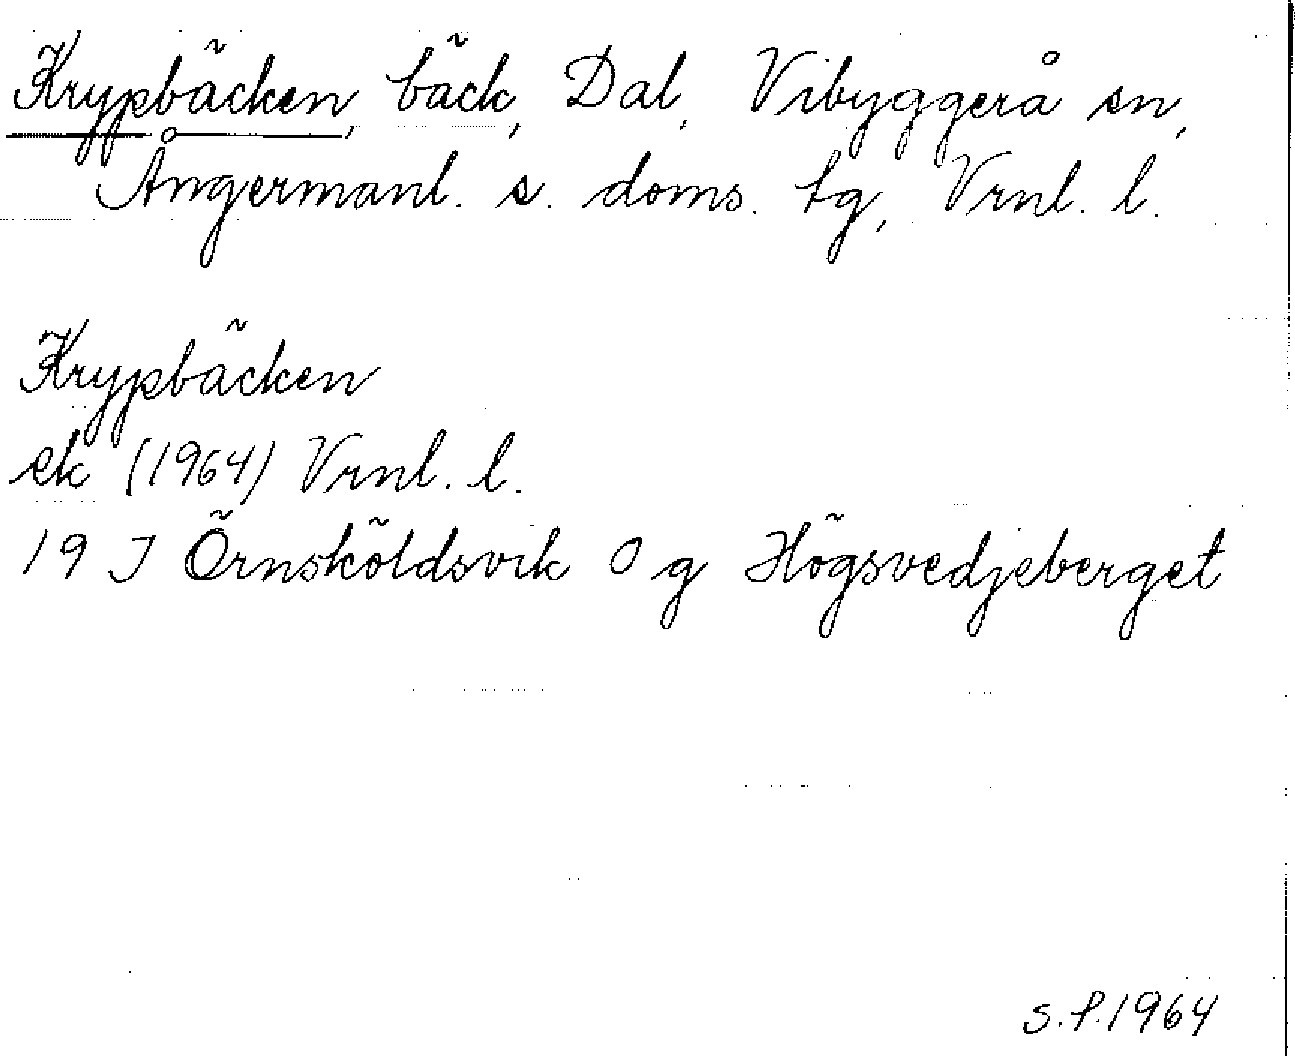 Krypbäcken, bäck, Dal, Vibyggerå sn,
Ångermanl. s. doms. tg, Vrnl. l.
Krypbäcken
ek (1964) Vrnl. l.
19 J Örnsköldsvik O g Högsvedjeberget
S.P.1964